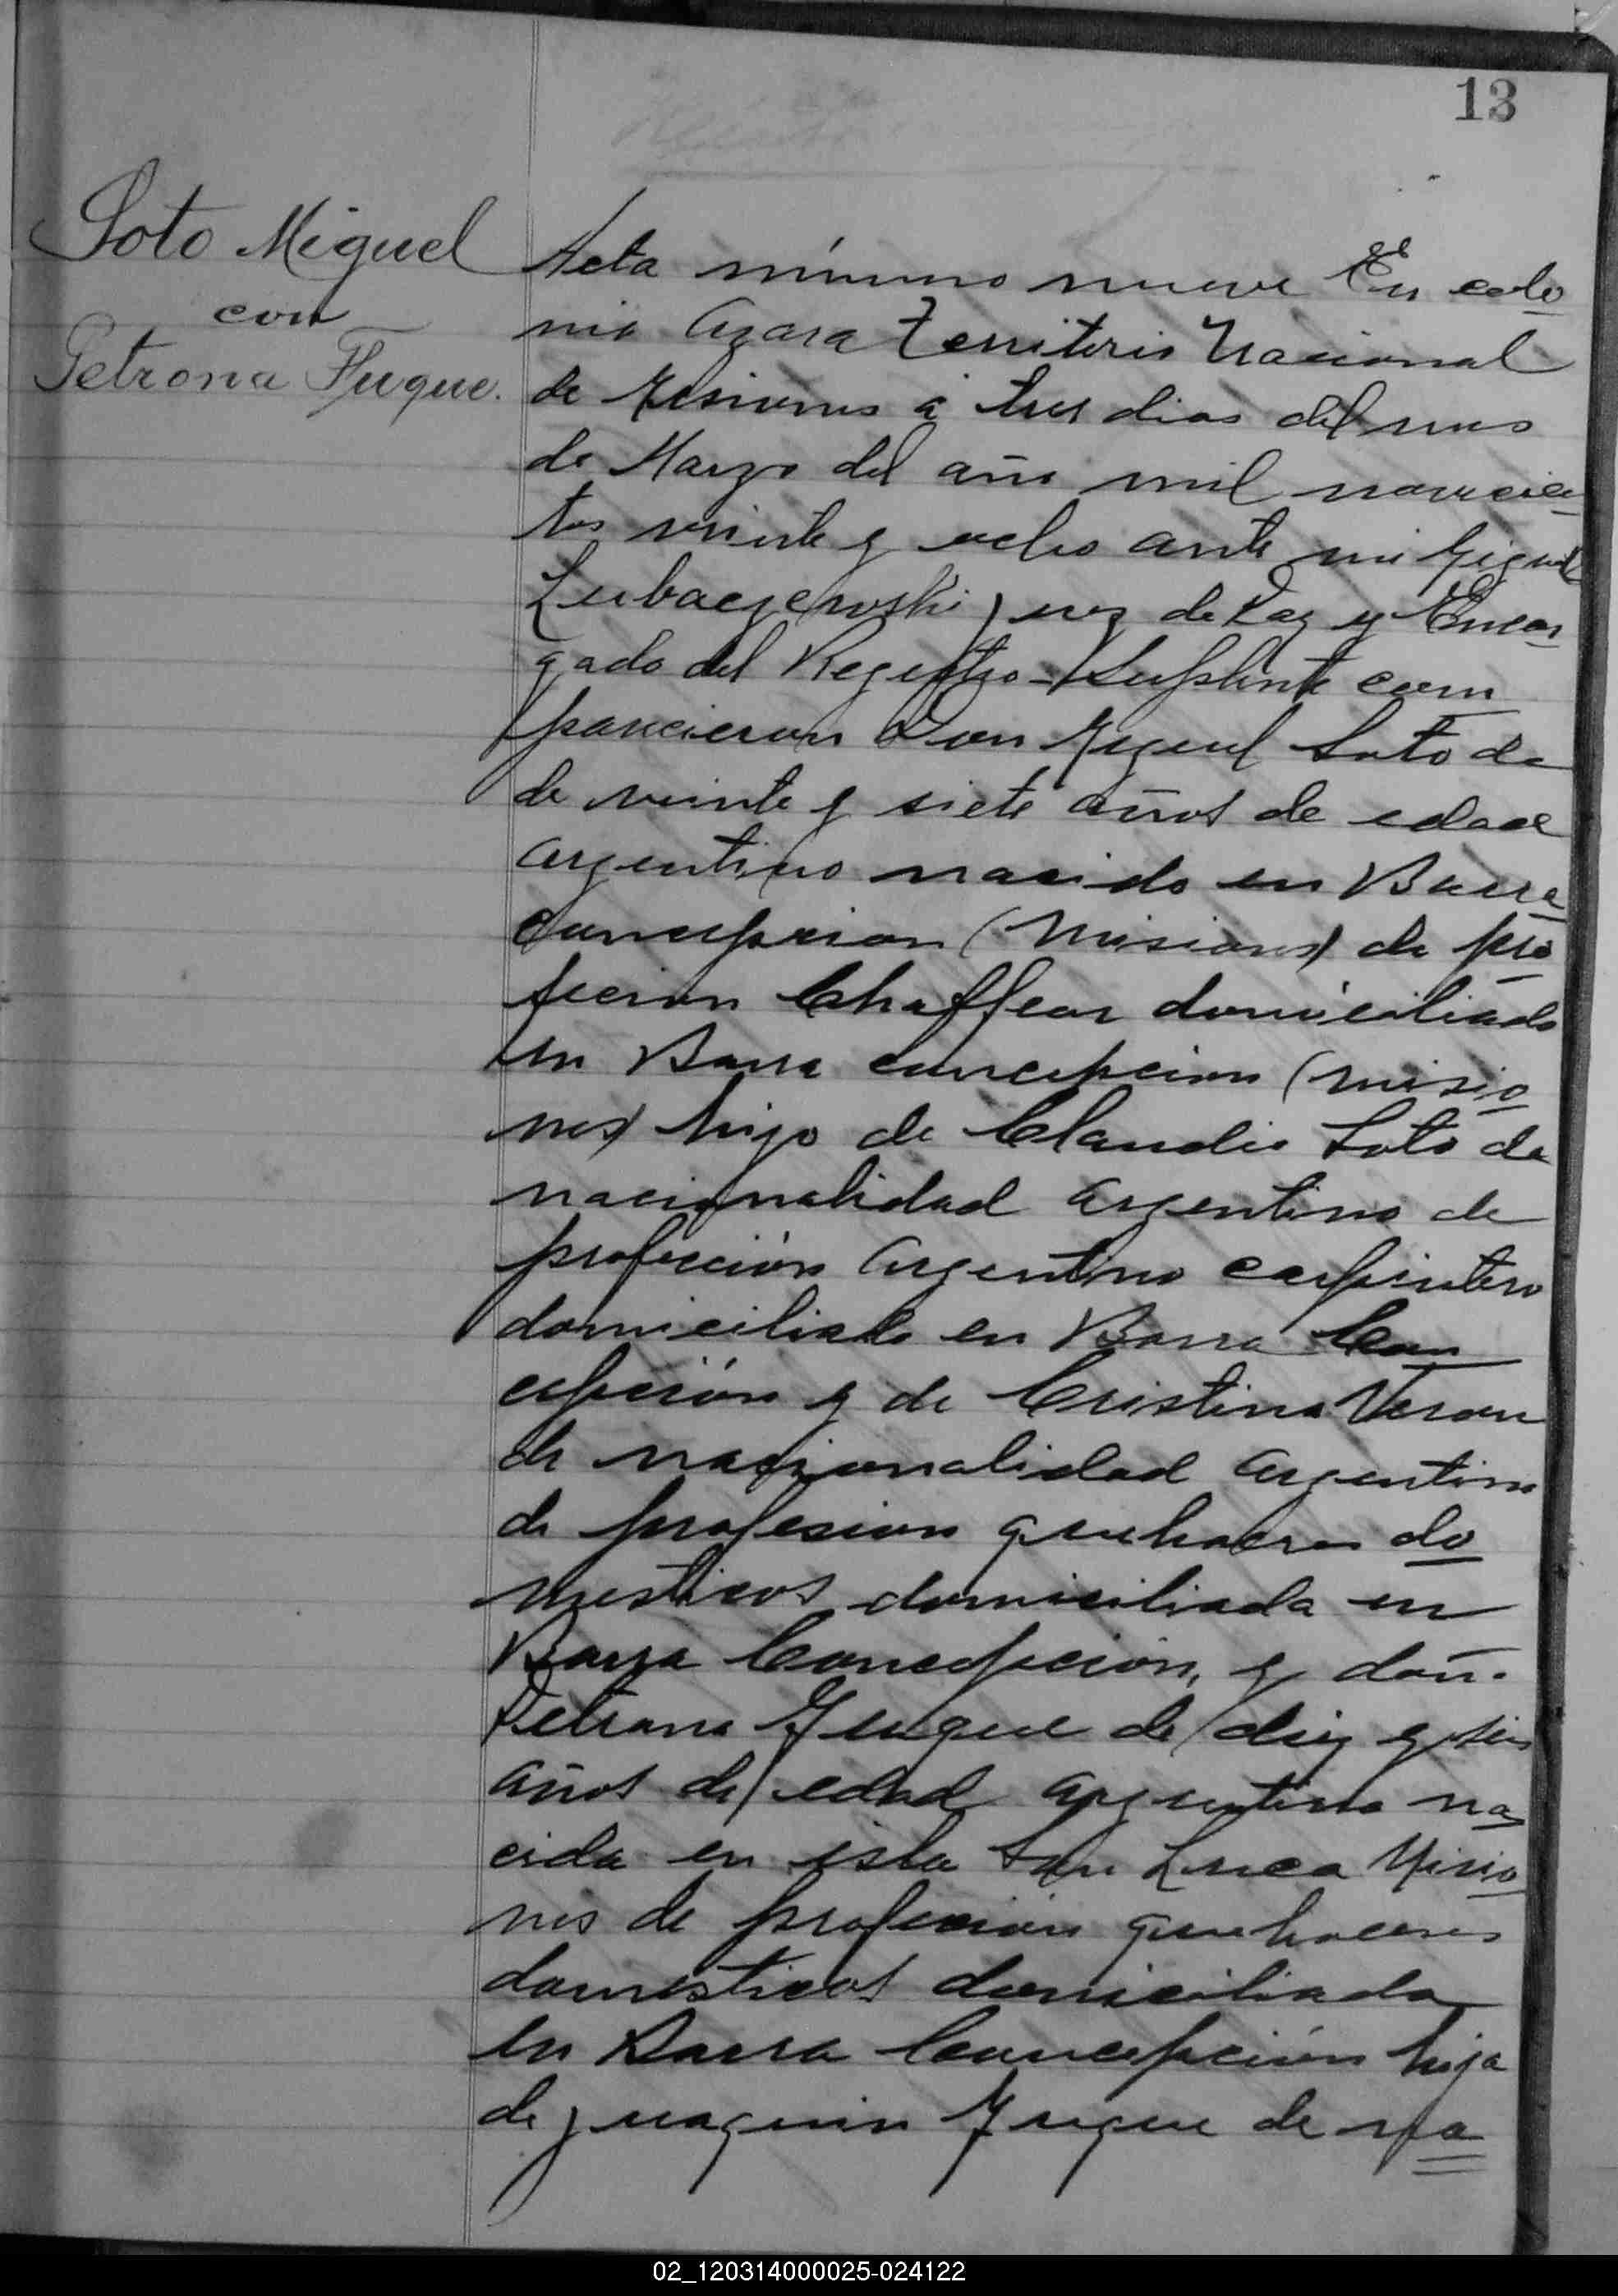 13
Soto Miguel
con
Petrona Fuque.
Acta número nueve En colo
nia Azara Territorio Nacional
de Misiones á tres dias del mes
de Marzo del año mil novecien
tos veinte y ocho ante mi Miguel
Lubaczewski Juez de Paz y Encar
gado del Registro - Suplente com
parecieron Don Miguel Soto de
de veinte y siete años de edad
argentino nacido en Barra
Concepcion (Misiones) de pro
fecion Chaffear domiciliado
en Barra concepcion (misio
nes) hijo de Claudio Soto de
nacionalidad argentino de
profección argentino carpintero
domiciliado en Barra Con
cepción y de Cristina Veron
de nacionalidad argentina
de profesion quehaceres do
mesticos domiciliada en
Barra Concepción, y doñ.
Petrona Fuque de diez y seis
años de edad argentina na
cida en isla San Luca Misio
nes de profesion quehaceres
domesticos domiciliada
en Barra Concepción hija
de Juaquin Fuque de na
02_120314000025-024122